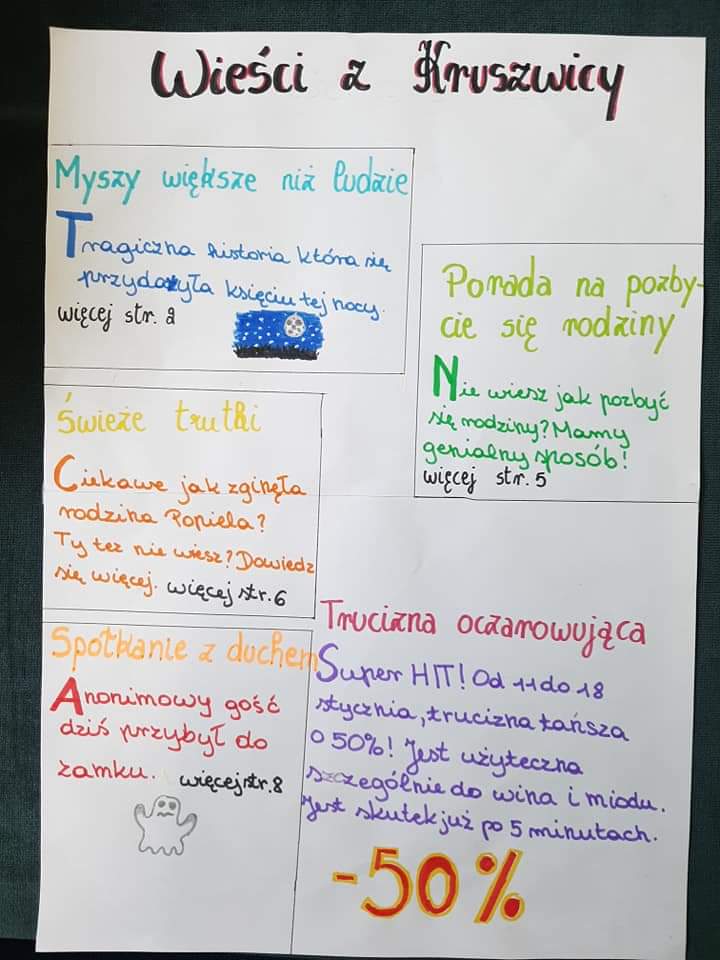 Wieści z Kruszwicy
Myszy większe niż ludzie
Tragiczna historia która się
przydażyła księciu tej nocy.
więcej str. 2
Porada na pozby-
cie się rodziny
Nie wiesz jak pozbyć
się rodziny? Mamy
genialny sposób!
więcej str. 5
Świeże trutki
Ciekawe jak zginęła
rodzina Popiela?
Ty też nie wiesz? Dowiedz
się więcej. więcej str. 6
Spotkanie z duchem
Anonimowy gość
dziś przybył do
zamku. więcej str. 8
Trucizna oczarowująca
Super HIT! Od 11 do 18
stycznia, trucizna tańsza
o 50%! Jest użyteczna
szczególnie do wina i miodu.
Jest skutek już po 5 minutach.
-50%